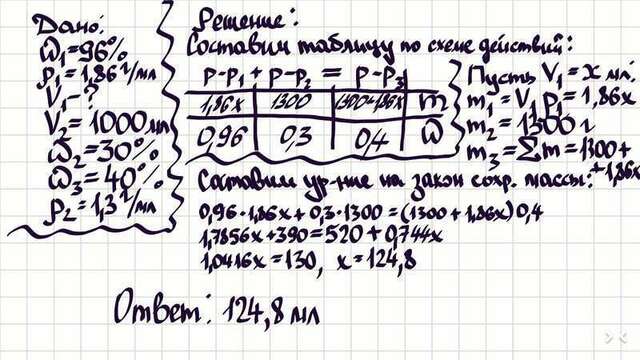 Дано:
ω₁=96%
ρ₁=1,86 г/мл
V₁-?
V₂=1000 мл
ω₂=30%
ω₃=40%
ρ₂=1,3 г/мл
Решение:
Составим таблицу по схеме действий:
р-р₁ + р-р₂ = р-р₃
1,86x | 1300 | 1300+1,86x | m
0,96 | 0,3 | 0,4 | ω
Пусть V₁=x мл.
m₁=V₁ρ₁=1,86x
m₂=1300 г
m₃=Σm=1300+
+1,86x
Составим ур-ние на закон сохр. массы:
0,96·1,86x+0,3·1300=(1300+1,86x)0,4
1,7856x+390=520+0,744x
1,0416x=130, x=124,8
Ответ: 124,8 мл